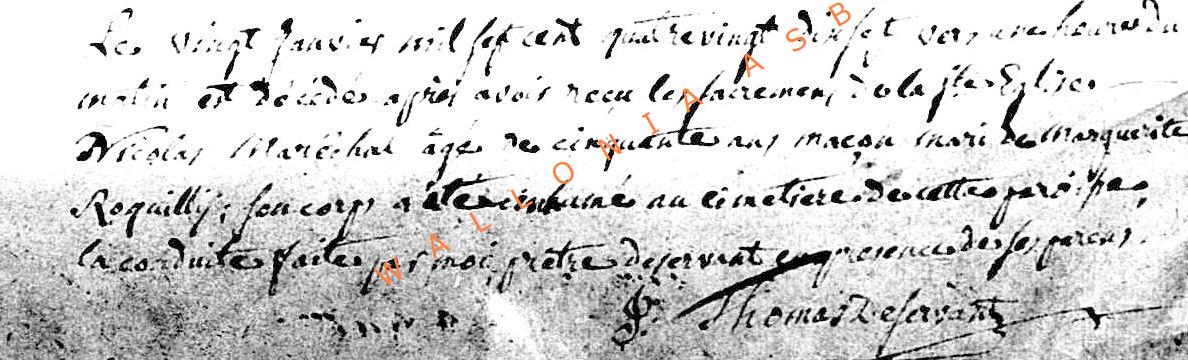 Le vingt janvier mil sept cent quatre vingt dix sept vers une heure du
matin est décédé après avoir reçu les sacremens de la Ste Eglise
Nicolas Maréchal âgé de cinquante ans maçon mari de Marguerite
Roquillis; son corps a été inhumé au cimetiere de cette paroisse,
la conduite faite par moi prêtre deservant en presence de ses parens.
J. Thomas Deservant
WALLONIA ASB